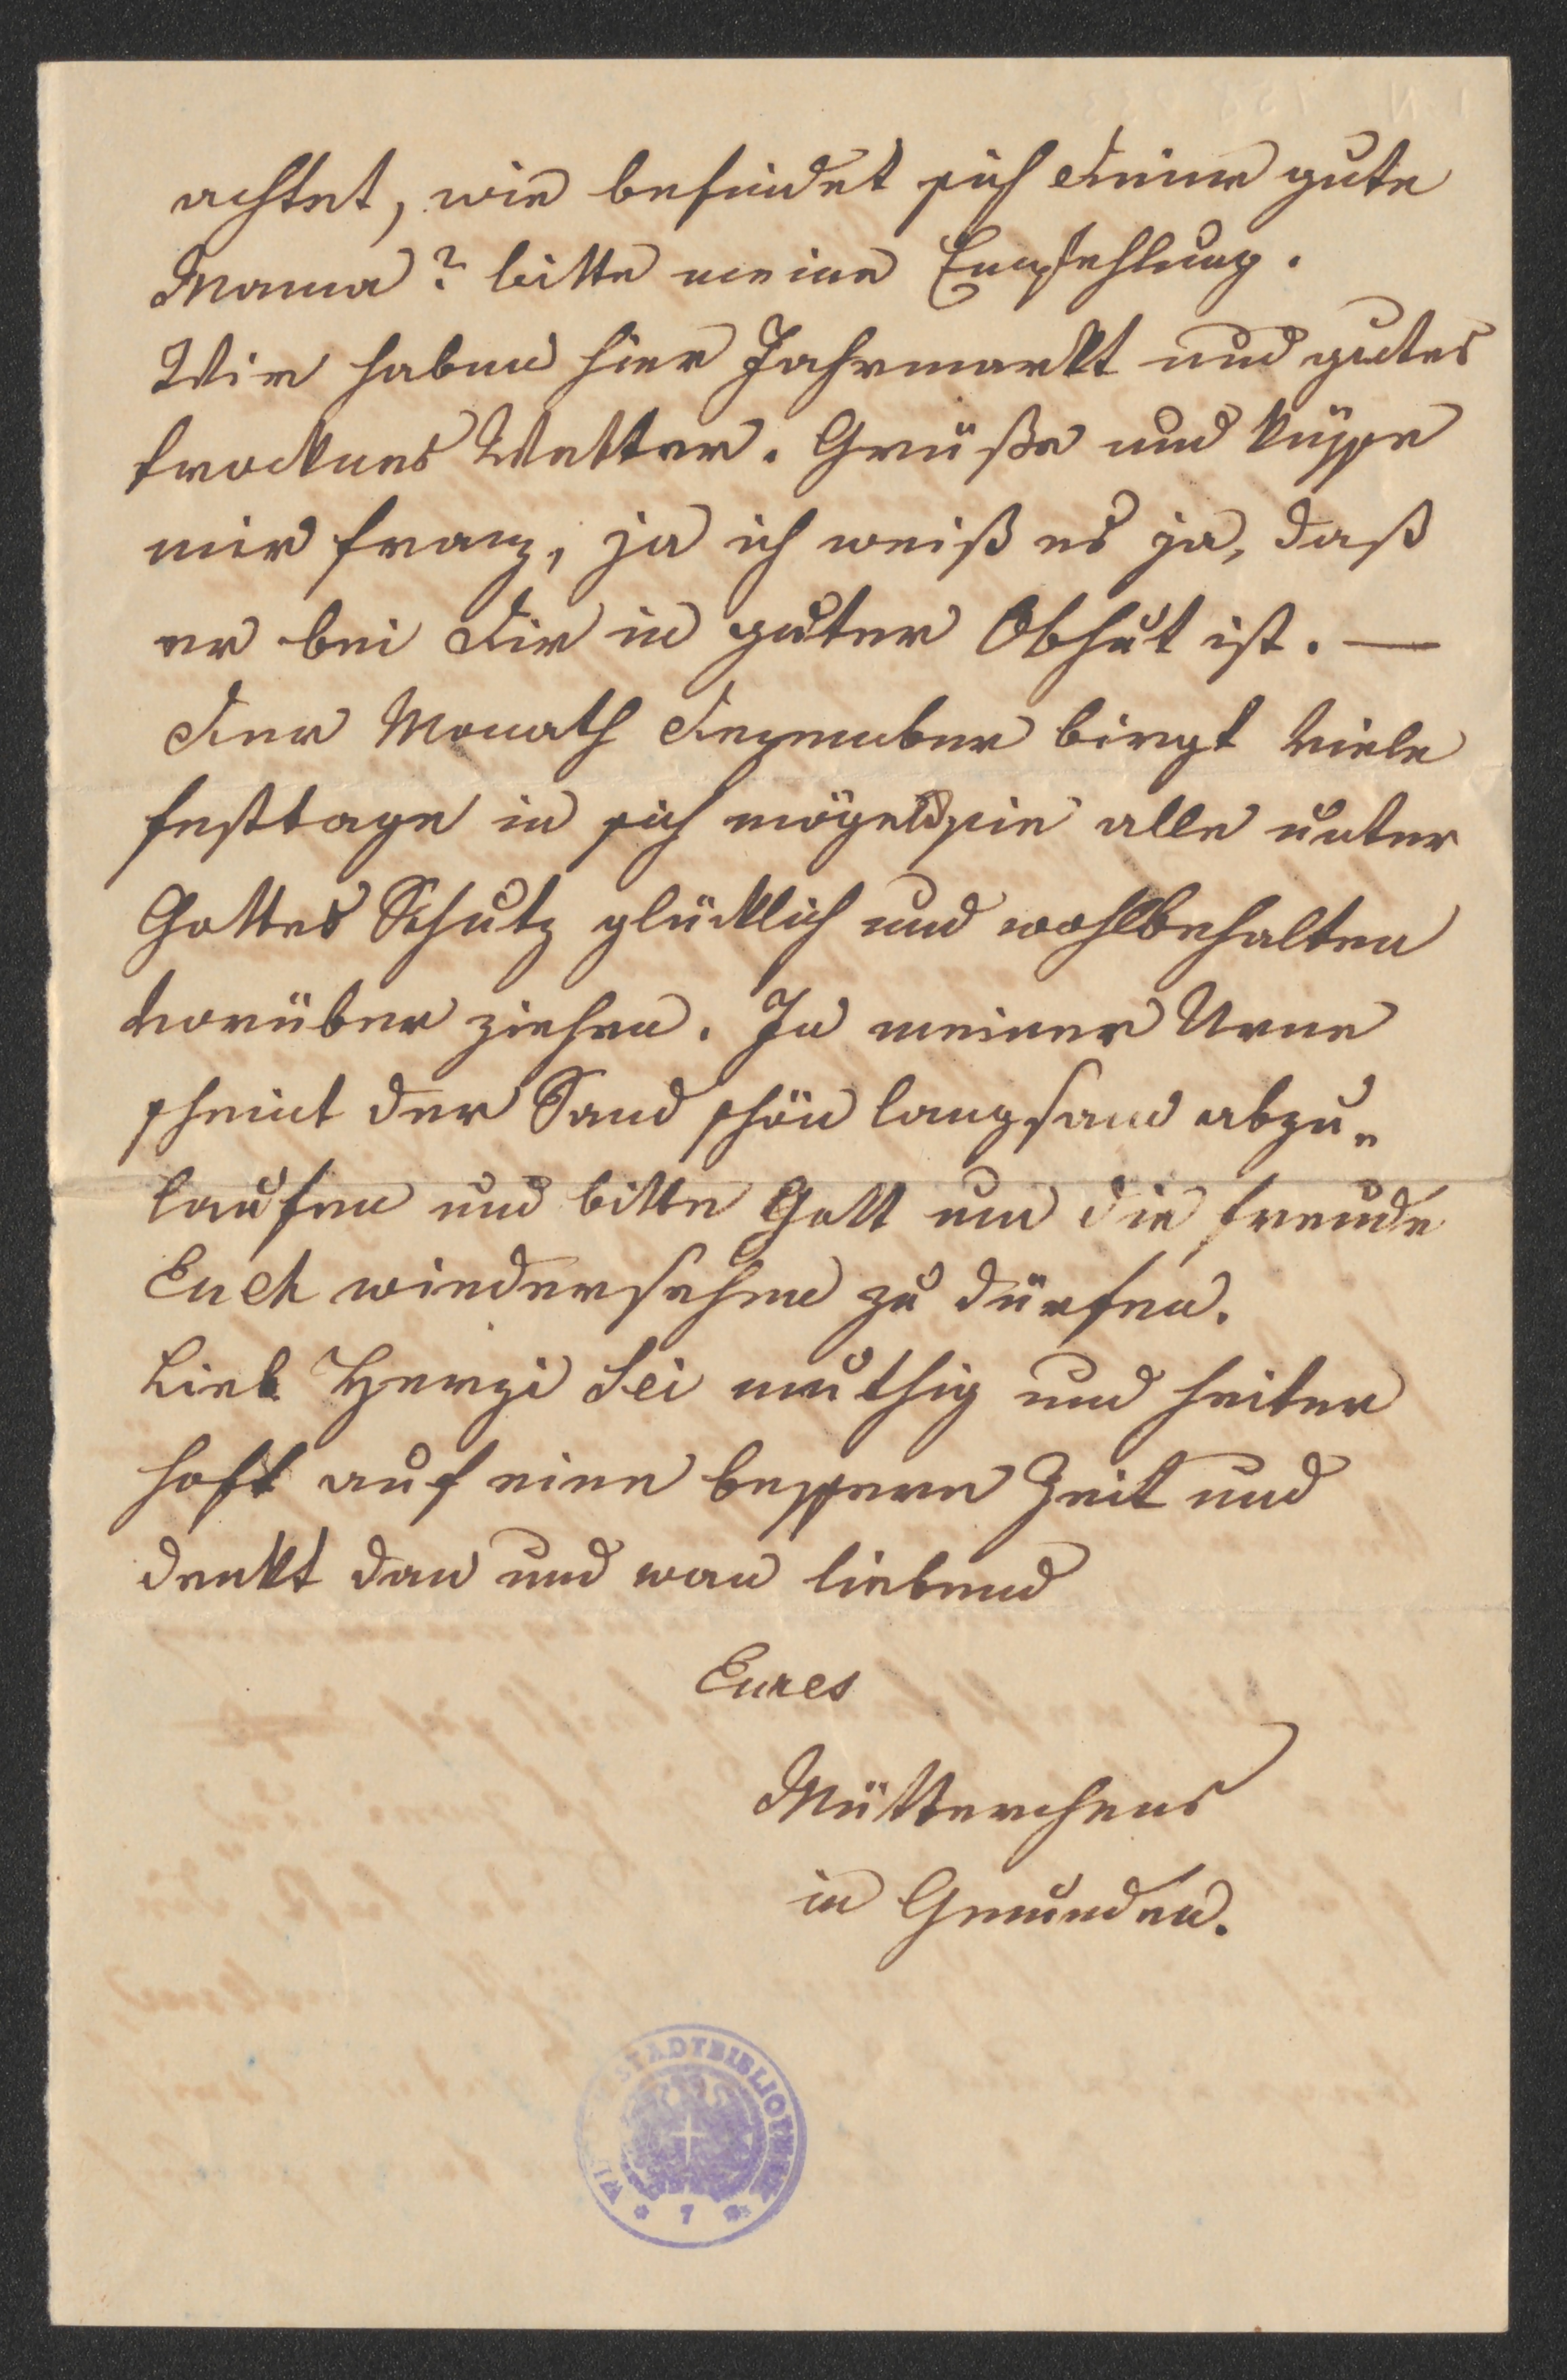 achtet, wie befindet sich Deine gute
Mama? bitte meine Empfehlung.
Wir haben hier Jahrmarkt und gutes
trocknes Wetter. Grüße und küsse
mir Franz, ja ich weiß es ja, daß
er bei Dir in guter Obhut ist. —
Der Monath Dezember birgt viele
Festtage in sich mögen sie alle unter
Gottes Schutz glücklich und wohlbehalten
vorüber ziehen. In meiner Urne
scheint der Sand schön langsam abzu„
laufen und bitte Gott um die Freude
Euch wiedersehen zu dürfen.
Lieb Herzi Sei muthig und heiter
hoft auf eine bessere Zeit und
denkt dan und wan liebend
Eures
Mütterchens
in Gmunden.
STADTBIBLIOTHEK
WI
* 7 *